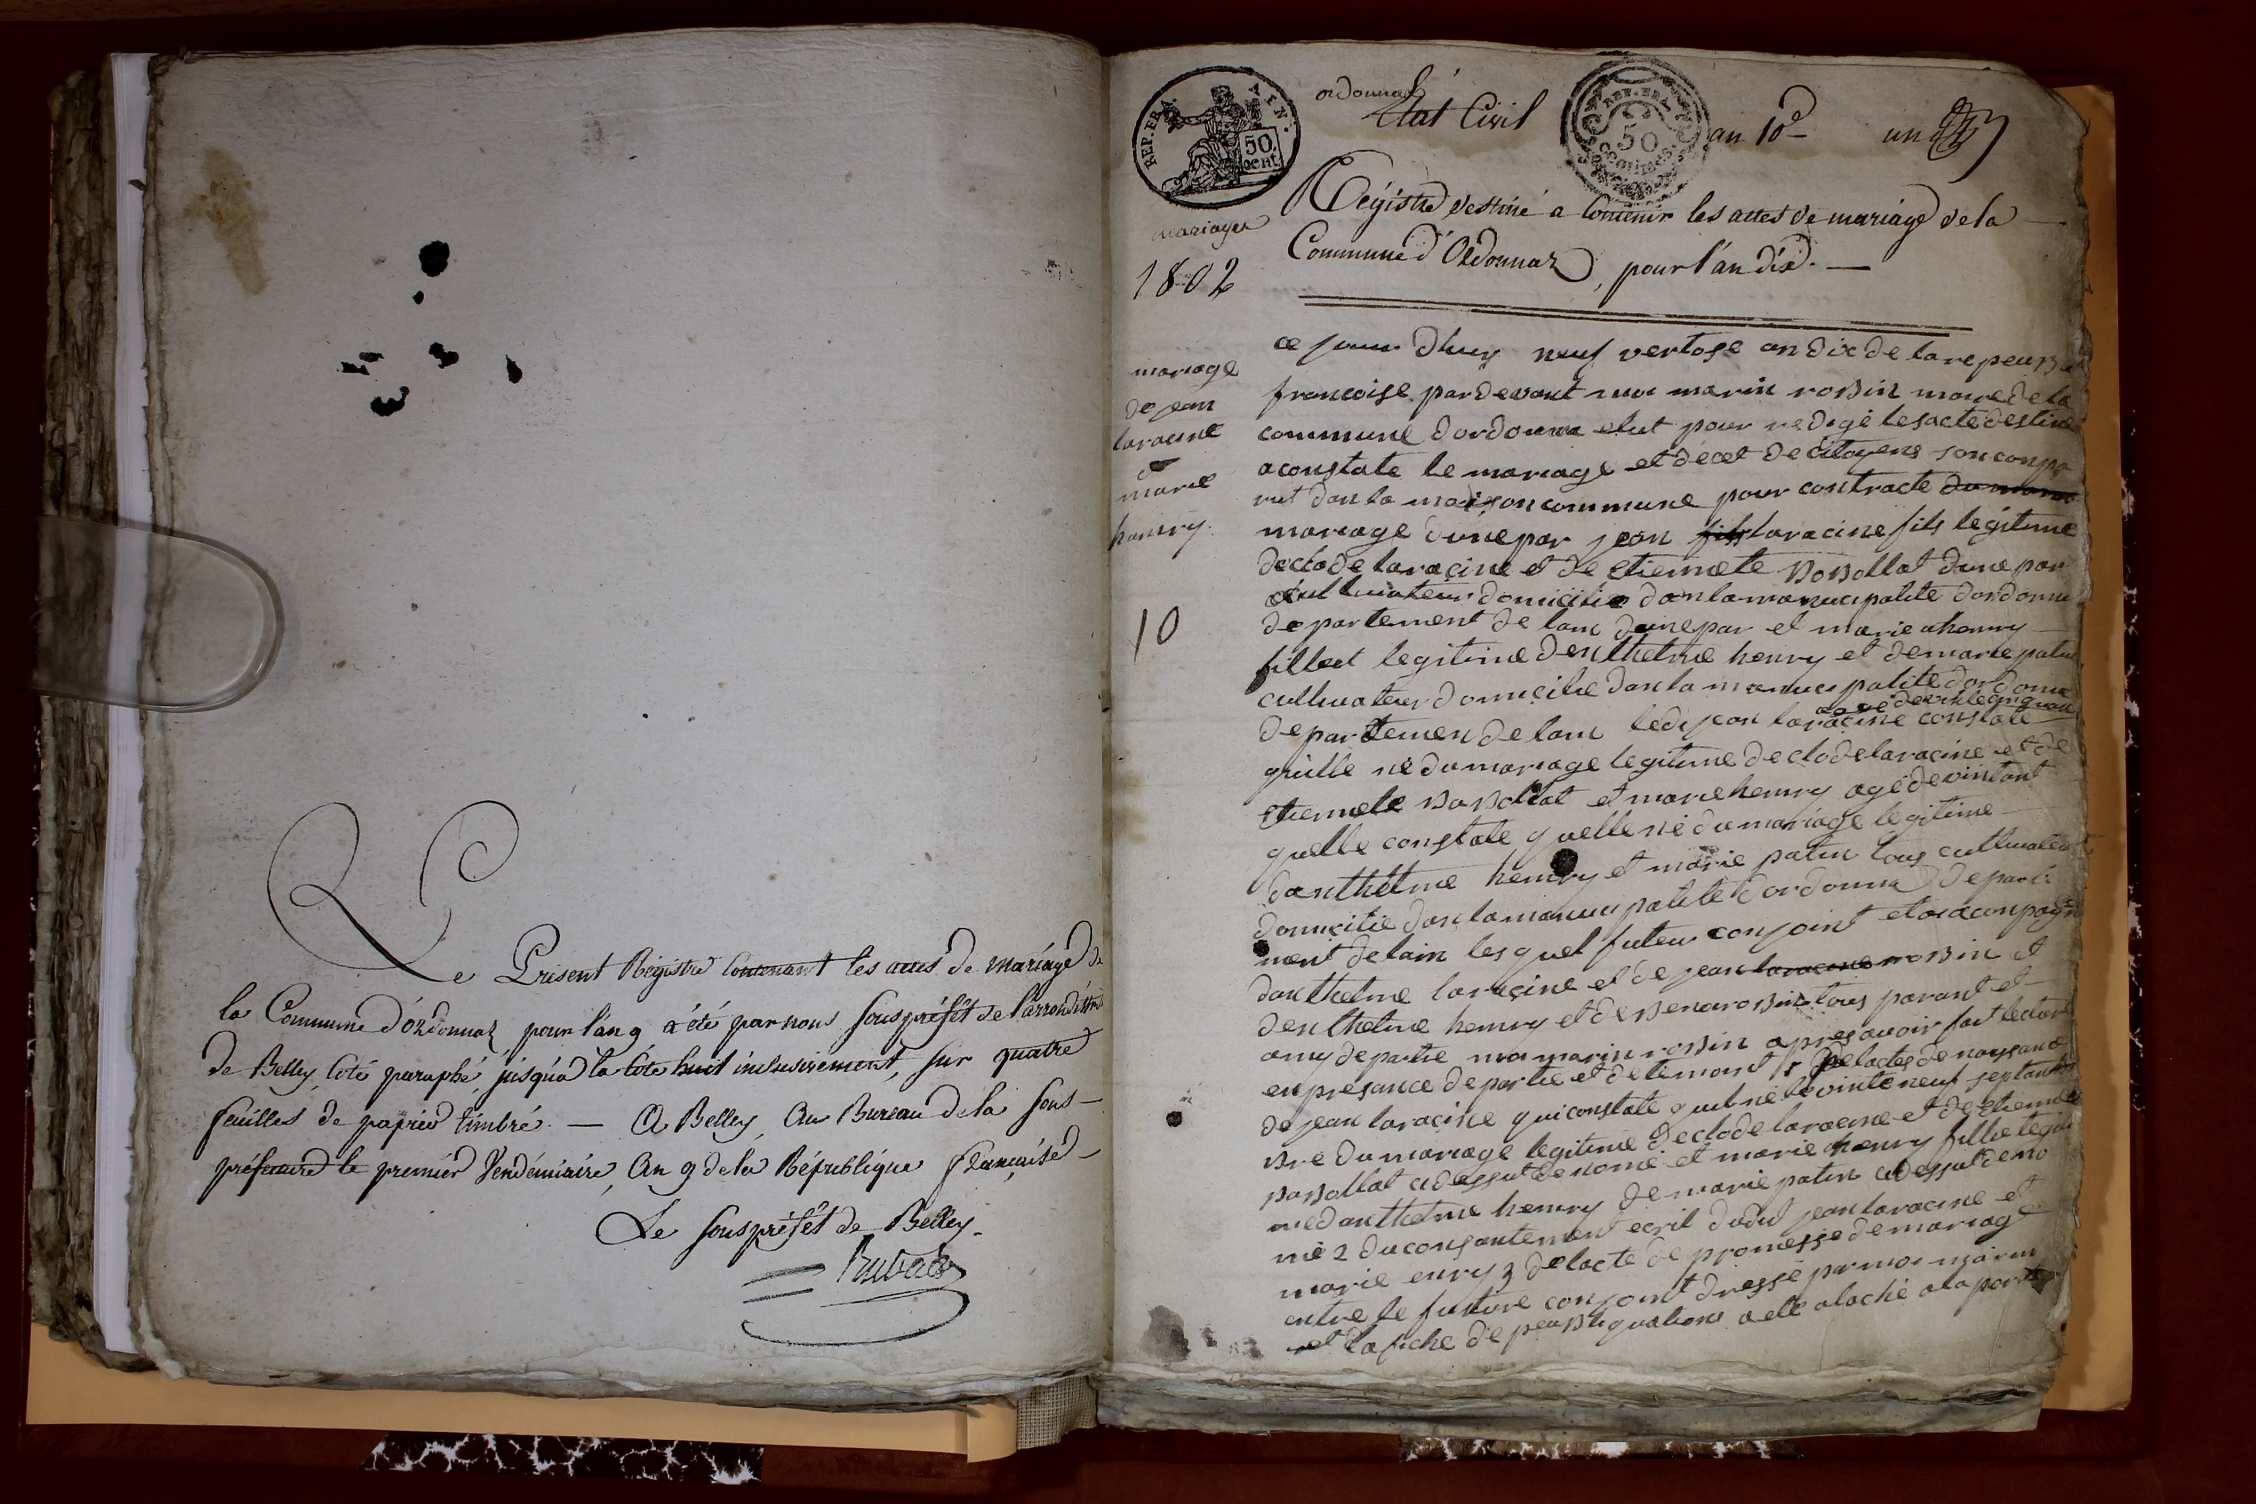 Le Présent Régistre Contenant les actes de mariage de
la Commune d'ordonnaz pour l'an 9 a été par nous souspréfét de l'arrondissm
de Belley, Coté paraphé, jusqu'à la Côte huit inclusivement, sur quatre
feuilles de papier timbré. — A Belley, Au Bureau de la sous-
préfecture le premiér Vendémiaire, An 9 de la République française
Le souspréfét de Belley.
Rubat
REP. FRA. AIN.
50 cent
ordonnaz
Etat Civil
REP. FRA.
50
centimes
an 10e
un
Mariages
1802
Régistre destiné a Contenir les actes de mariage de la
Commune d'Ordonnaz, pour l'an dix. —
mariage
de jean
laracine
&
marie
henry
10
ce jour dhuy neuf vertose an dix de la repeubli
francoise par devant moi marin robin maire de la
commune dordonna elut pour redigé les acte destine
a constate le mariage et décet de citoyens son conpa
rut dan la maison commune pour contracte du maria
mariage dune par jean fils laracine fils legitime
de clode laracine et de etiennete bobollat dune par
cultivateur domicilie dan la manucipalite dordonna
departement de lain dune par et marie henry
filleet legitime denthelme henry et de marie patin
cultivateur domicilie dan la manucipalite dordonna
age de vint cinq an
departemen de lain ledi jean laracine constate
quille né du mariage legitime de clode laracine et de
etiennete bobollat et marie henry agé de vint ant
quelle constate quelle né du mariage legitime
danthelme henry et marie patin tous cultivateur
domicilie dan la manucipalite dordonna departe
ment de lain lesquel futeur conjoint etoi aconpagn
danthelme laracine et de jean laracine robin et
denthelme henry et de robin tous parant et
amy de partie moi marin robin apres avoir fait lecture
en presance de partie et de temoint 1 de lactes de naysance
de jean laracine qui constate quil né le vinte neuf septanb
bre du mariage legitime de clode laracine et de etiennete
bobollat ci dessut denomé et marie henry fillie legiti
me danthelme henry de marie patin ci dessut deno
mé 2 du consantement ecrit dudit jean laracine et
marie enry 3 de lacte de promesse de mariage
entre le future conjoint dressé par moi marin
et lafiche de peubliquations a ete atache a la porte